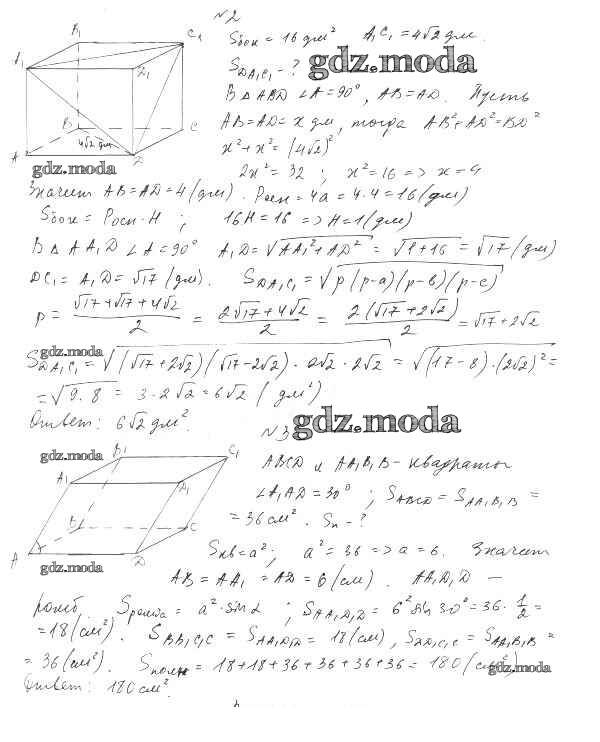 №2
Sбок = 16 дм² A₁C₁ = 4√2 дм.
S_DA₁C₁ - ? gdz.moda
В ΔABD ∠A = 90°, AB = AD. Пусть
AB = AD = x дм, тогда AB² + AD² = BD²
x² + x² = (4√2)²
2x² = 32 ; x² = 16 => x = 4
B₁ C₁ A₁ D₁ B C A D 4√2 дм
gdz.moda
Значит AB = AD = 4 (дм). Pосн = 4a = 4·4 = 16 (дм)
Sбок = Pосн·H ; 16H = 16 => H = 1 (дм)
В Δ AA₁D ∠A = 90° A₁D = √AA₁² + AD² = √1+16 = √17 (дм)
DC₁ = A₁D = √17 (дм). S_DA₁C₁ = √p(p-a)(p-b)(p-c)
p = (√17+√17+4√2)/2 = (2√17+4√2)/2 = 2(√17+2√2)/2 = √17+2√2
gdz.moda
S_DA₁C₁ = √(√17+2√2)(√17-2√2)·2√2·2√2 = √(17-8)·(2√2)² =
= √9·8 = 3·2√2 = 6√2 (дм²)
Ответ: 6√2 дм².
gdz.moda
№3
gdz.moda
B₁ C₁ A₁ D₁ B C A D
ABCD и AA₁B₁B - квадраты
∠A₁AD = 30° ; S_ABCD = S_AA₁B₁B =
= 36 см². Sп - ?
Sкв = a² ; a² = 36 => a = 6. Значит
gdz.moda
AB = AA₁ = AD = 6 (см). AA₁D₁D —
ромб. Sромба = a²·sin α ; S_AA₁D₁D = 6² sin 30° = 36·1/2 =
= 18 (см²). S_BB₁C₁C = S_AA₁D₁D = 18 (см), S_DD₁C₁C = S_AA₁B₁B =
= 36 (см²). Sполн = 18+18+36+36+36+36 = 180 (см²)
gdz.moda
Ответ: 180 см².